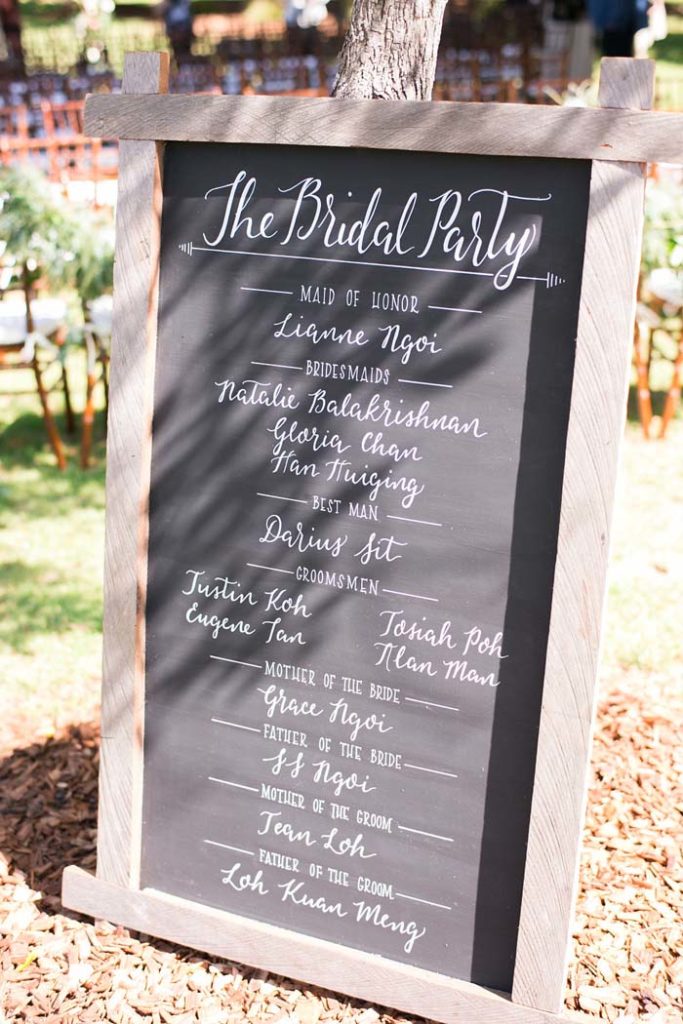 The Bridal Party
MAID OF HONOR
Lianne Ngoi
BRIDESMAIDS
Natalie Balakrishnan
Gloria Chan
Han Huiging
BEST MAN
Darius Sit
GROOMSMEN
Justin Koh
Eugene Tan
Josiah Poh
Alan Man
MOTHER OF THE BRIDE
Grace Ngoi
FATHER OF THE BRIDE
SS Ngoi
MOTHER OF THE GROOM
Jean Loh
FATHER OF THE GROOM
Loh Kuan Meng